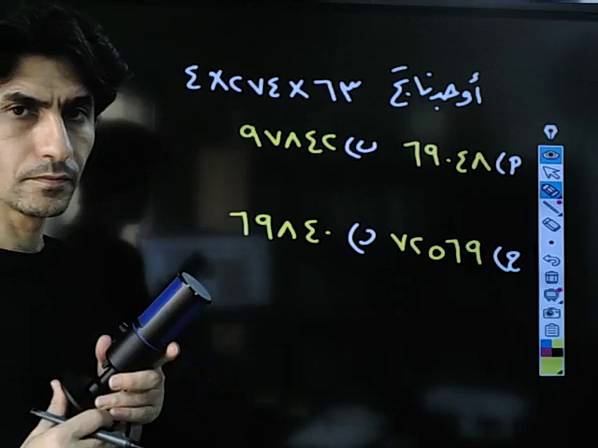 أوجد ناتج ٦٣ × ٢٧٤ × ٤
أ) ٦٩٠٤٨ ب) ٩٧٨٤٢
ج) ٧٢٥٦٩ د) ٦٩٨٤٠